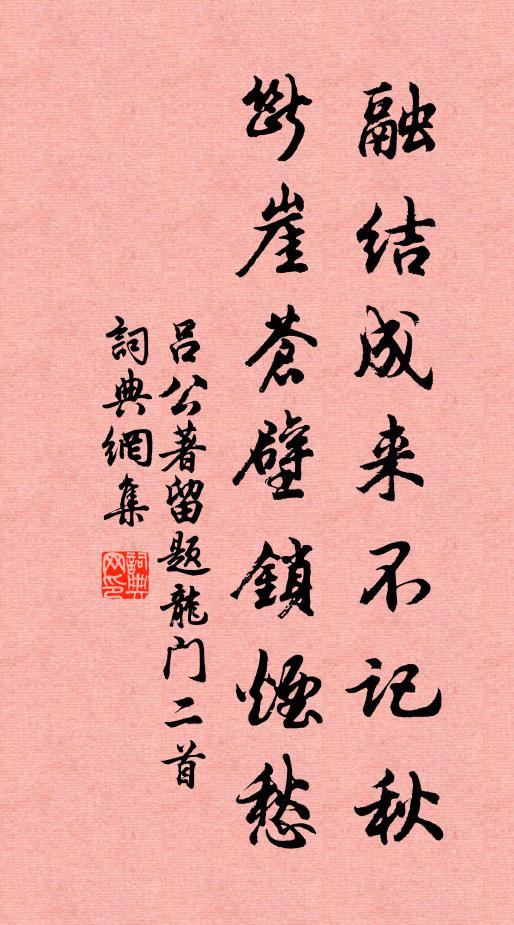 融结成来不记秋
断崖苍壁鎖煙愁
吕公著留题龍门二首
詞典網集
詞典网印